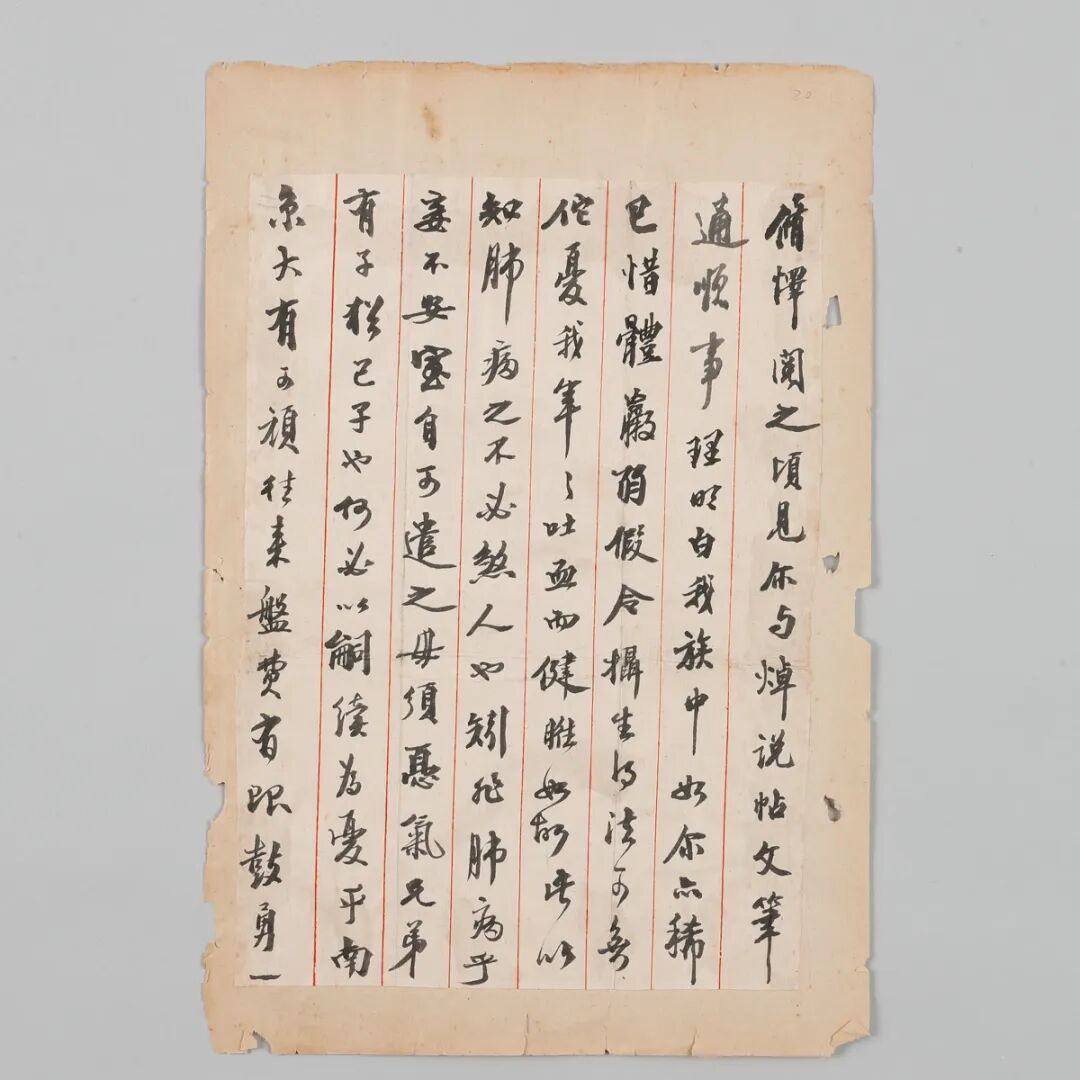 脩懌閱之頃見尔与焯説帖文筆
通順事理明白我族中如尔亦稀
已惜體羸弱假令攝生得法可無
佗憂我年々吐血而健勝如故此以
知肺病之不必煞人也矧非肺病乎
妾不安室自可遣之毋須慪氣兄弟
有子猶己子也何必以嗣續為憂乎南
京大有可頑往来盤費有限鼓勇一
20